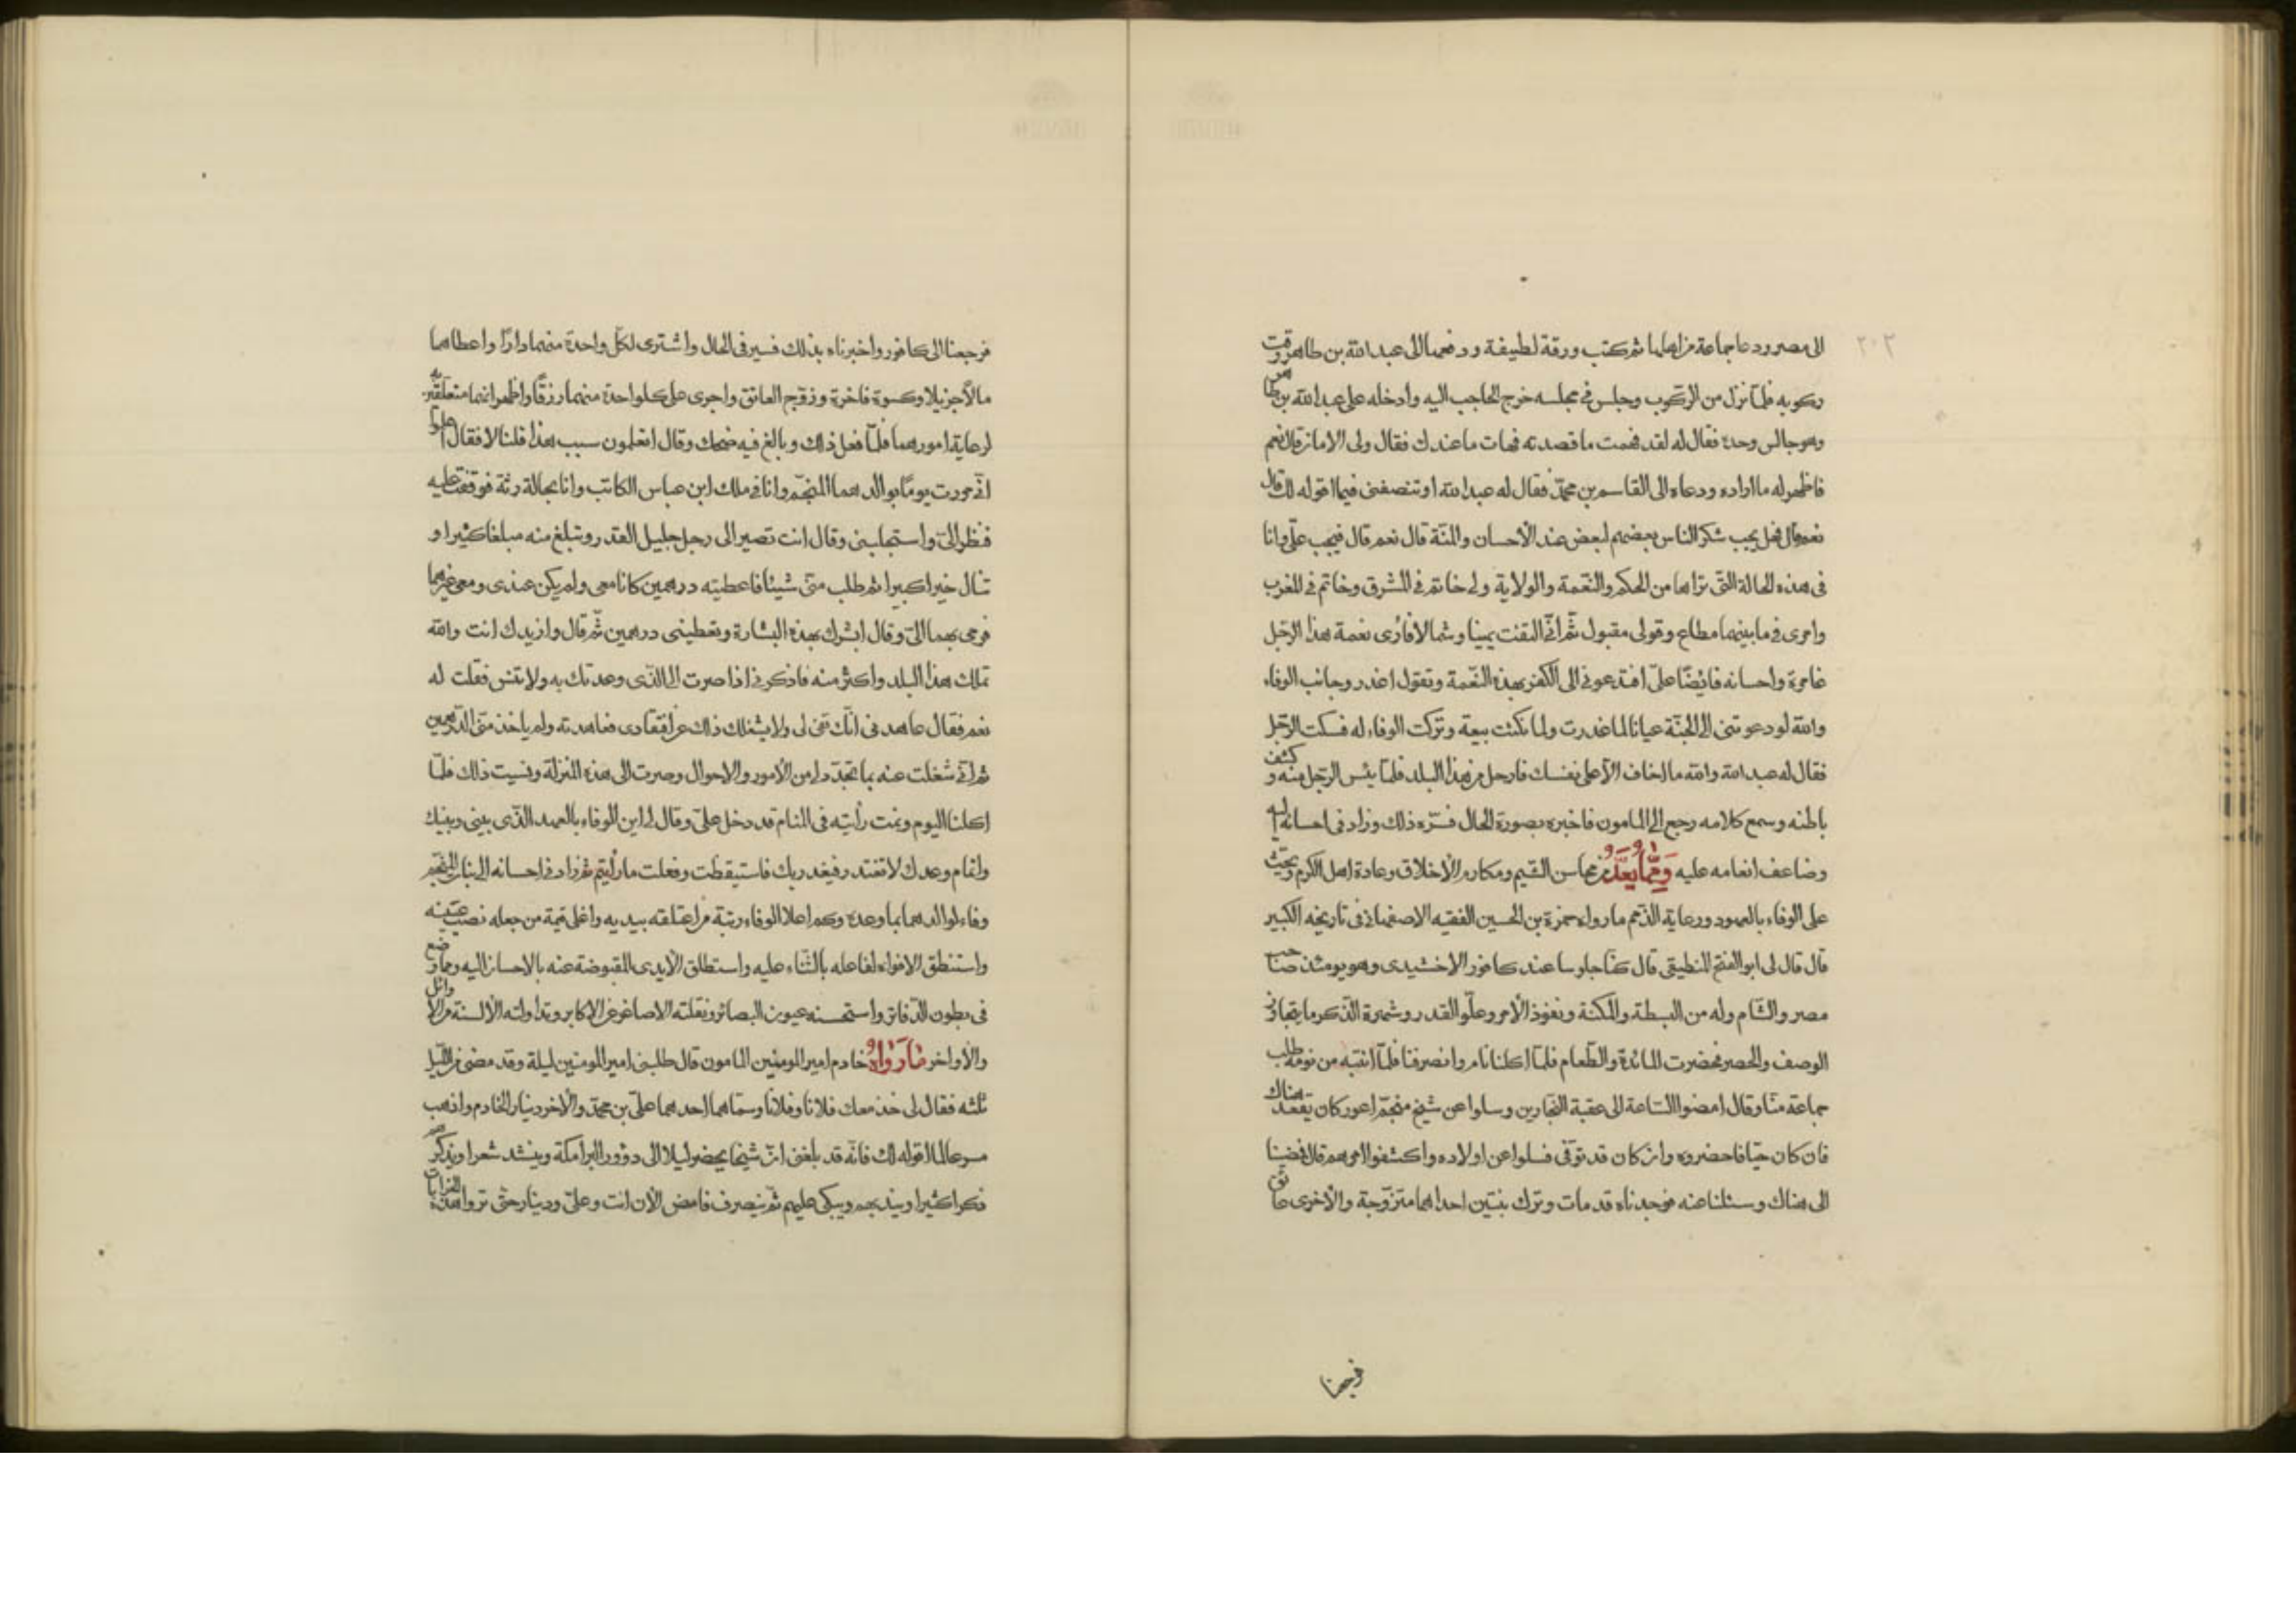 ٢٠٢
الى مصر ودعا جماعة من اهلها ثم كتب ورقة لطيفة ودفعها الى عبد الله بن طاهر وقت
ركوبه فلمّا نزل من الركوب وجلس فى مجلسه خرج الحاجب اليه وادخله على عبد الله بن طاهر
وهو جالس وحده فقال له لقد فهمت ما قصدته فهات ما عندك فقال ولى الامان قال نعم
فاظهر له ما اراده ودعاه الى القاسم بن محمّد فقال له عبد الله او تنصفنى فيما اقوله لك قال
نعم قال فهل يجب شكر الناس بعضهم لبعض عند الأحسان والمنّة قال نعم قال فيجب علىّ وانا
فى هذه الحالة التّى تراها من الحكم والنّعمة والولاية ولى خاتم فى المشرق وخاتم فى المغرب
وامرى فى ما بينهما مطاع وقولى مقبول ثمّ انّى التفت يمينا وشمالا فأرى نعمة هذا الرّجل
غامرة واحسانه فائضًا علىّ افتدعونى الى الكفر بهذه النّعمة وتقول اغدر وجانب الوفاء
والله لو دعوتنى الى الجنّة عيانا لما غدرت ولما نكثت بيعة وتركت الوفاء له فسكت الرّجل
فقال له عبد الله والله ما اخاف الّا على نفسك فارحل من هذا البلد فلمّا يئس الرّجل منه وكشف
باطنه وسمع كلامه رجع الى المامون فاخبره بصورة الحال فسرّه ذلك وزاد فى احسانه اليه
وضاعف انعامه عليه وَمِمَّا يُعَدُّ من محاسن الشّيم ومكارم الأخلاق وعادة اهل الكرم ويحثّ
على الوفاء بالعهود ورعاية الذّمم ما رواه حمزة بن الحسين الفقيه الاصفهانى فى تاريخه الكبير
قال قال لى ابو الفتح المنطيقى قال كنّا جلوسا عند كافور الاخشيدى وهو يومئذ صاحب
مصر والشّام وله من البسطة والمكنة ونفوذ الأمر وعلّو القدر وشهرة الذّكر ما يتجاوز
الوصف والحصر فحضرت المائدة والطّعام فلمّا اكلنا نام وانصرفنا فلمّا انتبه من نومه طلب
جماعة منّا وقال امضوا السّاعة الى عقبة النّجارين وسلوا عن شيخ منجّم اعور كان يقعد هناك
فان كان حيّا فاحضروه وان كان قد توّفى فسلوا عن اولاده واكشفوا امرهم قال فمضينا
الى هناك وسئلنا عنه فوجدناه قد مات وترك بنتين احداهما متزوّجة والأخرى عاتق
فرجعنا
فرجعنا الى كافور واخبرناه بذلك فسير فى الحال واشترى لكلّ واحدة منهما دارًا واعطاهما
مالًا جزيلا وكسوة فاخرة وزوّج العاتق واجرى على كلّ واحدة منهما رزقًا واظهر انهما متعلّقتين به
لرعاية امورهما فلمّا فعل ذلك وبالغ فيه ضحك وقال اتعلمون سبب هذا قلنا لا فقال اعلموا
انّى مررت يومًا بوالدهما المنجّم وانا فى ملك ابن عباس الكاتب وانا بحالة رثة فوقفت عليه
فنظر الىّ واستجلبنى وقال انت تصير الى رجل جليل القدر وتبلغ منه مبلغا كثيرا و
تنال خيرا كبيرا ثم طلب منّى شيئا فاعطيته درهمين كانا معى ولم يكن عندى ومعى غيرهما
فرمى بهما الىّ وقال ابشّرك بهذه البشارة وتعطينى درهمين ثمّ قال وازيدك انت والله
تملك هذا البلد واكثر منه فاذكرنى اذا صرت الى الّذى وعدتك به ولا تنس فقلت له
نعم فقال عاهدنى انّك تفى لى ولا يشغلك ذلك عن افتقادى فعاهدته ولم ياخذ منّى الدّرهمين
ثم انّى شغلت عنه بما تجدّد لى من الأمور والاحوال وصرت الى هذه المنزلة ونسيت ذلك فلمّا
اكلنا اليوم ونمت رأيته فى المنام قد دخل علىّ وقال لى اين الوفاء بالعهد الذّى بينى وبينك
واتمام وعدك لا تغتدر فيغدر بك فاستيقظت وفعلت ما رأيتم ثم زاد فى احسانه الى بنات المنجّم
وفاء لوالدهما بما وعده وكم اعلا الوفاء رتبة من اعتلقه بيديه واغلى قيمة من جعله نصب عينيه
واستنطق الافواه لفاعله بالثّناء عليه واستطلق الأيدى المقبوضة عنه بالاحسان اليه وما وضع
فى بطون الدّفاتر واستحسنه عيون البصائر ونقلته الاصاغر عن الاكابر وتداولته الألسنة من الأوائل
والأواخر مَا رَوَاهُ خادم امير المومنين المامون قال طلبنى امير المومنين ليلة وقد مضى من اللّيل
ثلثه فقال لى خذ معك فلانا وفلانا وسمّاهما احدهما علىّ بن محمّد والأخر دينار الخادم واذهب
مسرعا لما اقوله لك فانّه قد بلغنى انّ شيخا يحضر ليلا الى دؤور البرامكة وينشد شعرا ويذكرهم
ذكرا كثيرا ويندبهم ويبكى عليهم ثمّ ينصرف فامض الأن انت وعلىّ ودينار حتّى تروا هذه الخرابات